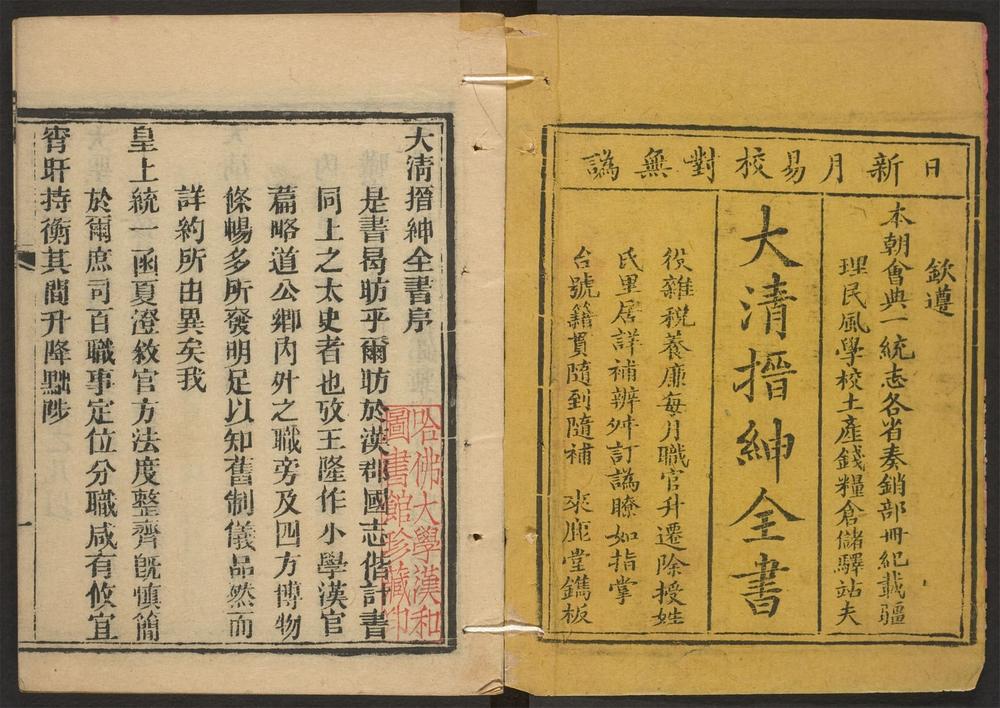 日新月易校對無譌
欽遵
本朝會典一統志各省奏銷部冊紀載疆
理民風學校土產錢糧倉儲驛站夫
大清搢紳全書
役雜稅養廉每月職官升遷除授姓
氏里居詳補辨舛訂譌瞭如指掌
台號籍貫隨到隨補 來鹿堂鐫板
大清搢紳全書序
是書曷昉乎爾昉於漢郡國志偕計書
同上之太史者也攷王隆作小學漢官
篇略道公卿內外之職旁及四方博物
條暢多所發明足以知舊制儀品然而
詳約所由異矣我
皇上統一函夏澄敘官方法度整齊旣愼簡
於爾庶司百職事定位分職咸有攸宜
宵旰持衡其間升降黜陟
一
哈佛大學漢和
圖書館珍藏印